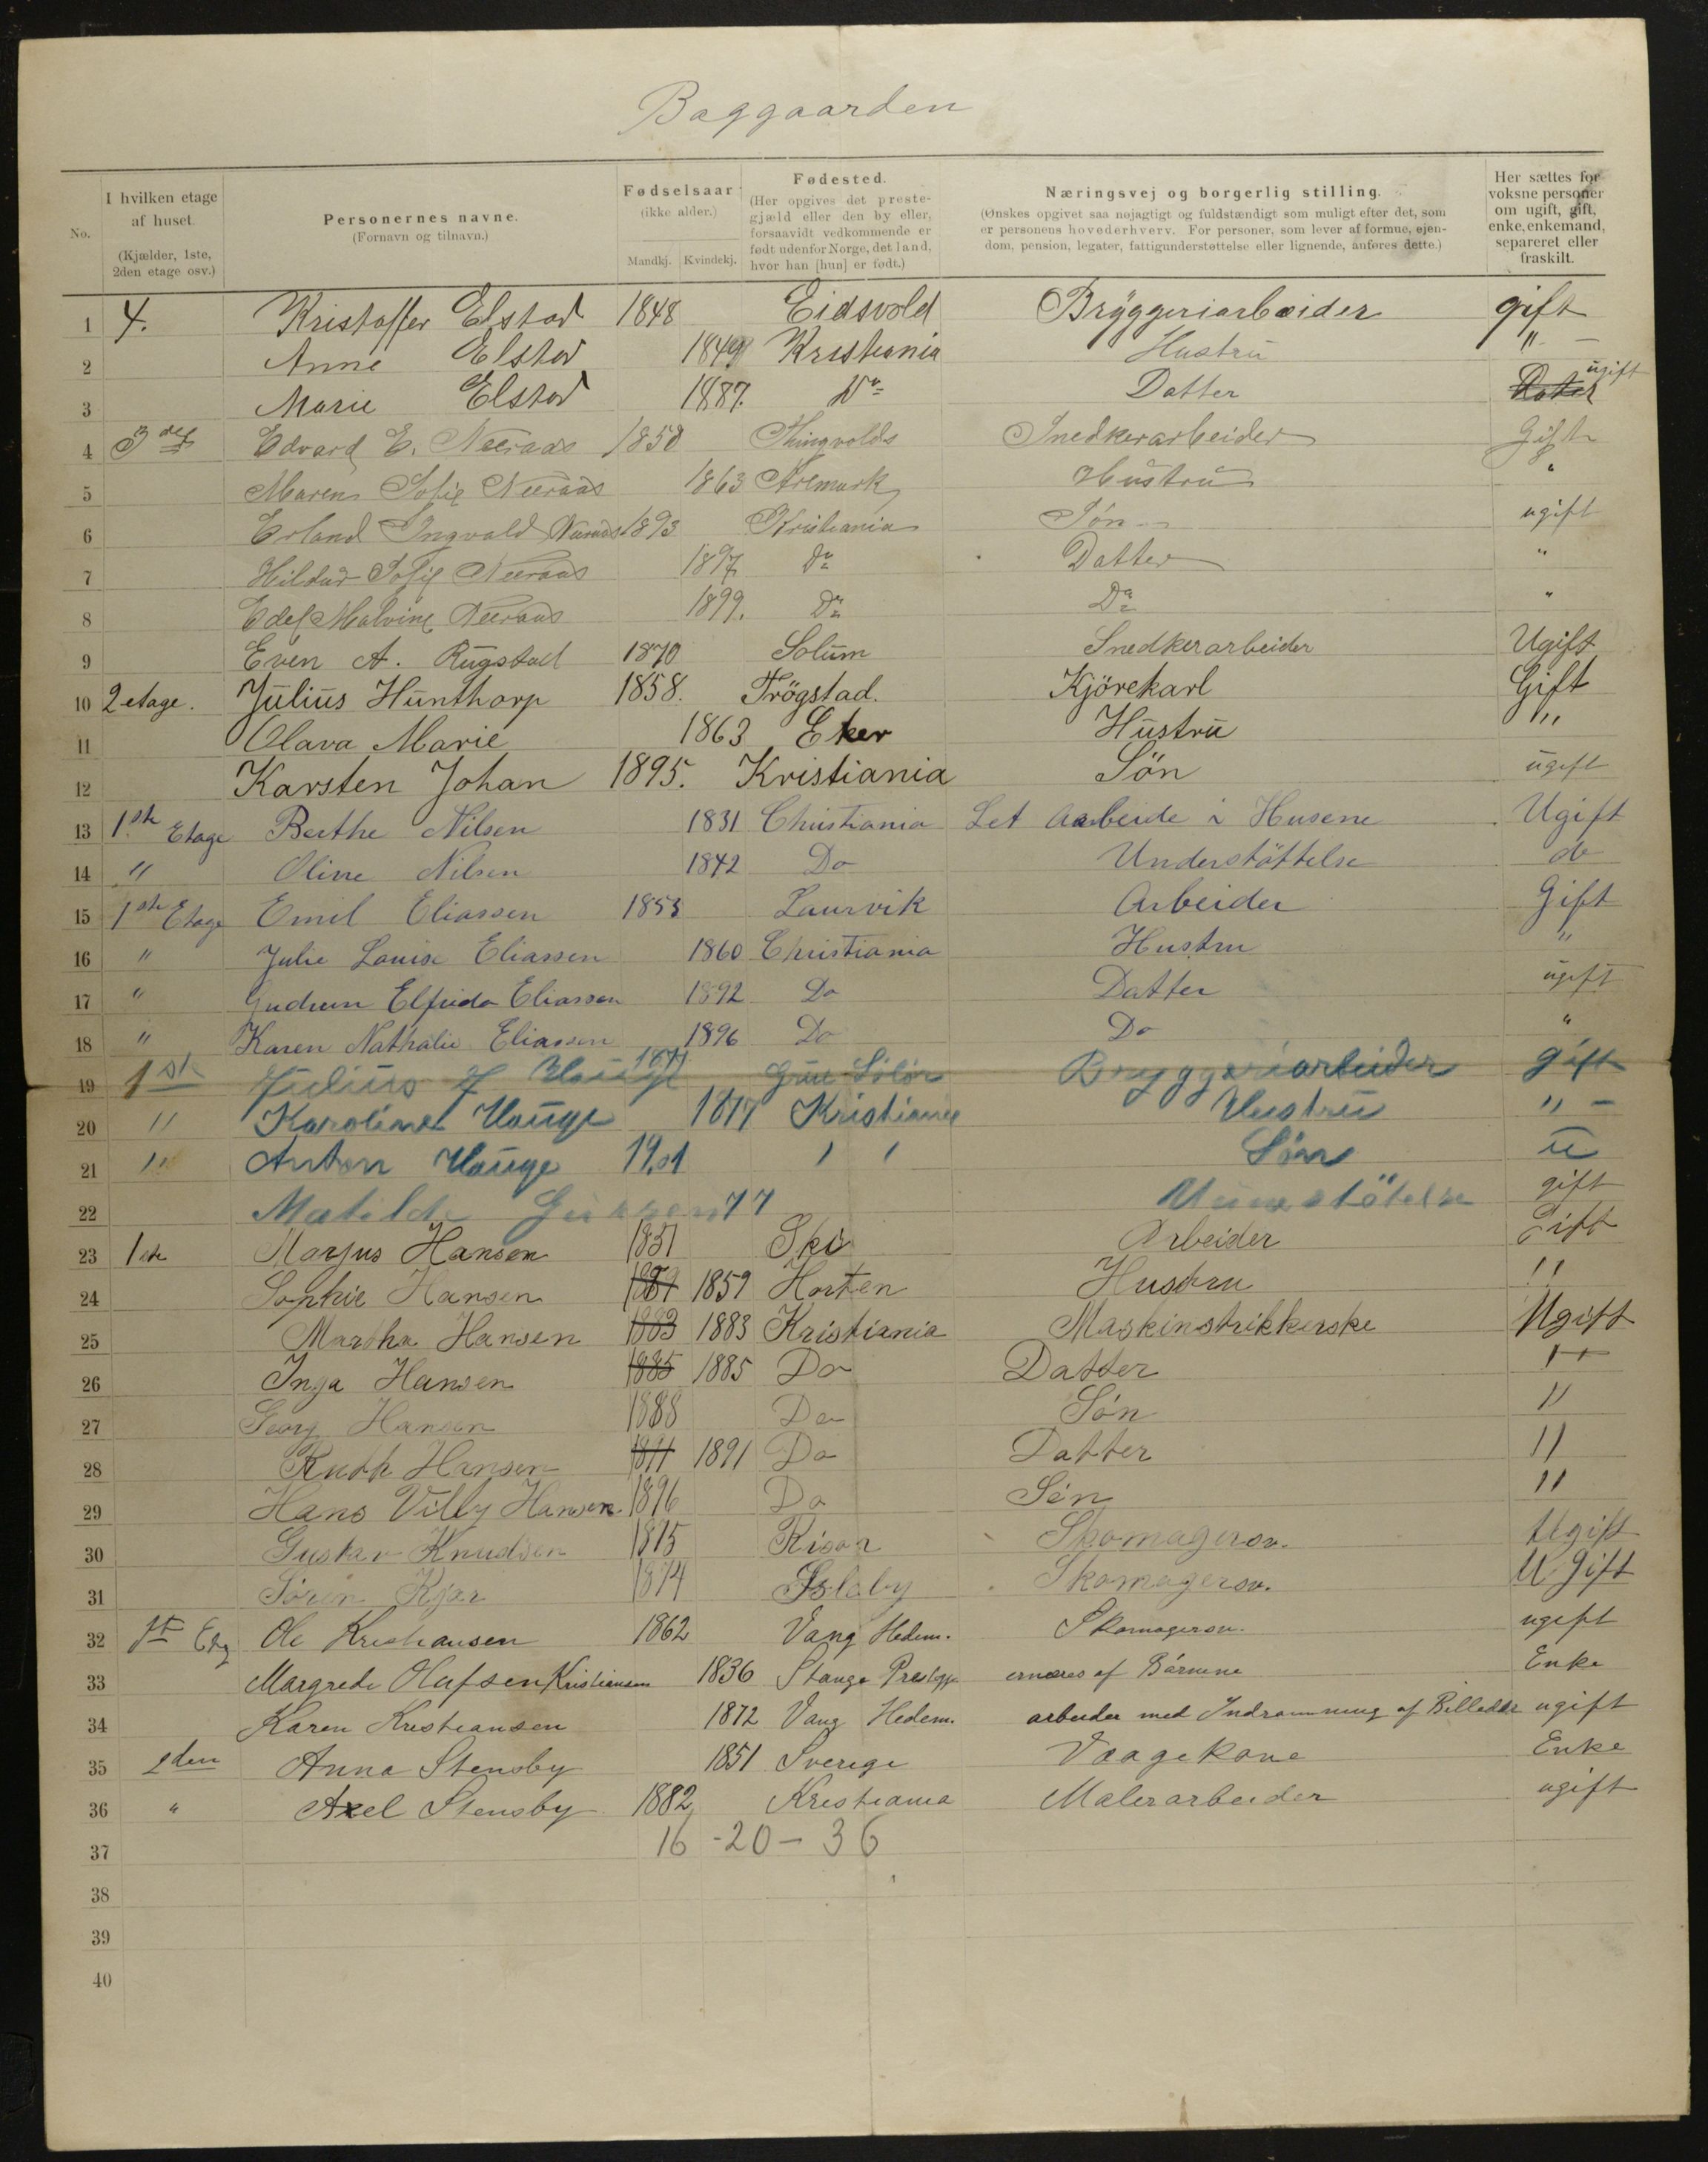 Baggaarden
No. I hvilken etage af huset. (Kjælder, 1ste, 2den etage osv.) Personernes navne. (Fornavn og tilnavn.) Fødselsaar (ikke alder.) Mandkj. Kvindekj. Fødested. (Her opgives det prestegjæld eller den by eller, forsaavidt vedkommende er født udenfor Norge, det land, hvor han [hun] er født.) Næringsvej og borgerlig stilling. (Ønskes opgivet saa nøjagtigt og fuldstændigt som muligt efter det, som er personens hovederhverv. For personer, som lever af formue, ejendom, pension, legater, fattigunderstøttelse eller lignende, anføres dette.) Her sættes for voksne personer om ugift, gift, enke, enkemand, separeret eller fraskilt.
1 4. Kristoffer Elstad 1848 Eidsvold Bryggeriarbeider gift
2 Anne Elstad 1849 Kristiania Hustru " -
3 Marie Elstad 1887. Do Datter ugift
4 3die Edvard E. Neeraas 1850 Thingvolds Snedkerarbeider Gift
5 Maren Sofie Neeraas 1863 Aremark Hustru "
6 Erland Ingvald Neeraas 1893 Kristiania Søn ugift
7 Hildur Sofie Neeraas 1897 Do Datter "
8 Edel Malvine Neeraas 1899. Do Do "
9 Even A. Rugstad 1870 Solum Snedkerarbeider Ugift
10 2 etage. Julius Hunthorp 1858. Trögstad. Kjörekarl Gift
11 Olava Marie 1863 Eker Hustru "
12 Karsten Johan 1895. Kristiania Sön ugift
13 1ste Etage Berthe Nilsen 1831 Christiania Let Aarbeide i Husene Ugift
14 " Oline Nilsen 1842 Do Understöttelse do
15 1ste Etage Emil Eliassen 1853 Laurvik Arbeider Gift
16 " Julie Louise Eliassen 1860 Christiania Hustru "
17 " Gudrun Elfrida Eliassen 1892 Do Datter ugift
18 " Karen Nathalie Eliassen 1896 Do Do "
19 1ste Julius J Hauge 1871 Grue Solör Bryggeriarbeider gift
20 " Karoline Hauge 1877 Kristiania Hustru " -
21 " Anton Hauge 1901 " " Sön u
22 Matilde 77 gift
23 1ste Marjus Hansen 1851 Ski Arbeider Gift
24 Sophie Hansen 1859 Horten Hustru "
25 Martha Hansen 1883 1883 Kristiania Maskinstrikkerske Ugift
26 Inga Hansen 1885 1885 Do Datter "
27 Georg Hansen 1888 Do Sön "
28 Ruth Hansen 1891 Do Datter "
29 Hans Villy Hansen 1896 Do Sön "
30 Gustav Knudsen 1875 Risör Skomagersv. Ugift
31 Sören Kjær 1874 Skomagersv. U Gift
32 1st Etg Ole Kristiansen 1862 Vang Hedem. Skomagersv. ugift
33 Margrede Olafsen Kristiansen 1836 Stange Prestgj. ernæres af Børnene Enke
34 Karen Kristiansen 1872 Vang Hedem. arbeider med Indramning af Billeder ugift
35 2den Anna Stensby 1851 Sverige Vaagekone Enke
36 " Axel Stensby 1882 Kristiania Malerarbeider ugift
37 16 - 20 - 36
38
39
40